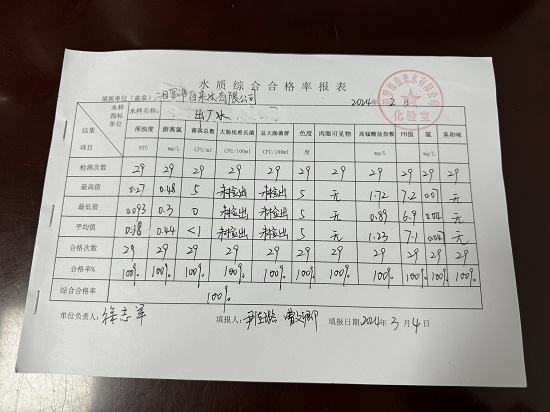 水质综合合格率报表
填报单位（盖章） 自来水有限公司 2024年2月
自来水有限公司
化验室
水样名称： 出厂水
水样 指标 单位 结果 项目 浑浊度 游离氯 菌落总数 大肠埃希氏菌 总大肠菌群 色度 肉眼可见物 高锰酸盐指数 PH值 氨 臭和味
NTU mg/L CFU/ml CFU/100ml CFU/100ml 度 mg/L mg/L
检测次数 29 29 29 29 29 29 29 29 29 29 29
最高值 0.27 0.48 5 未检出 未检出 5 无 1.72 7.2 无
最低值 0.093 0.3 0 未检出 未检出 5 无 0.89 6.9 无
平均值 0.18 0.44 <1 未检出 未检出 5 无 1.23 7.1 无
合格次数 29 29 29 29 29 29 29 29 29 29 29
合格率% 100% 100% 100% 100% 100% 100% 100% 100% 100% 100% 100%
综合合格率 100%
单位负责人：徐志军 填报人： 填报日期2024年3月4日